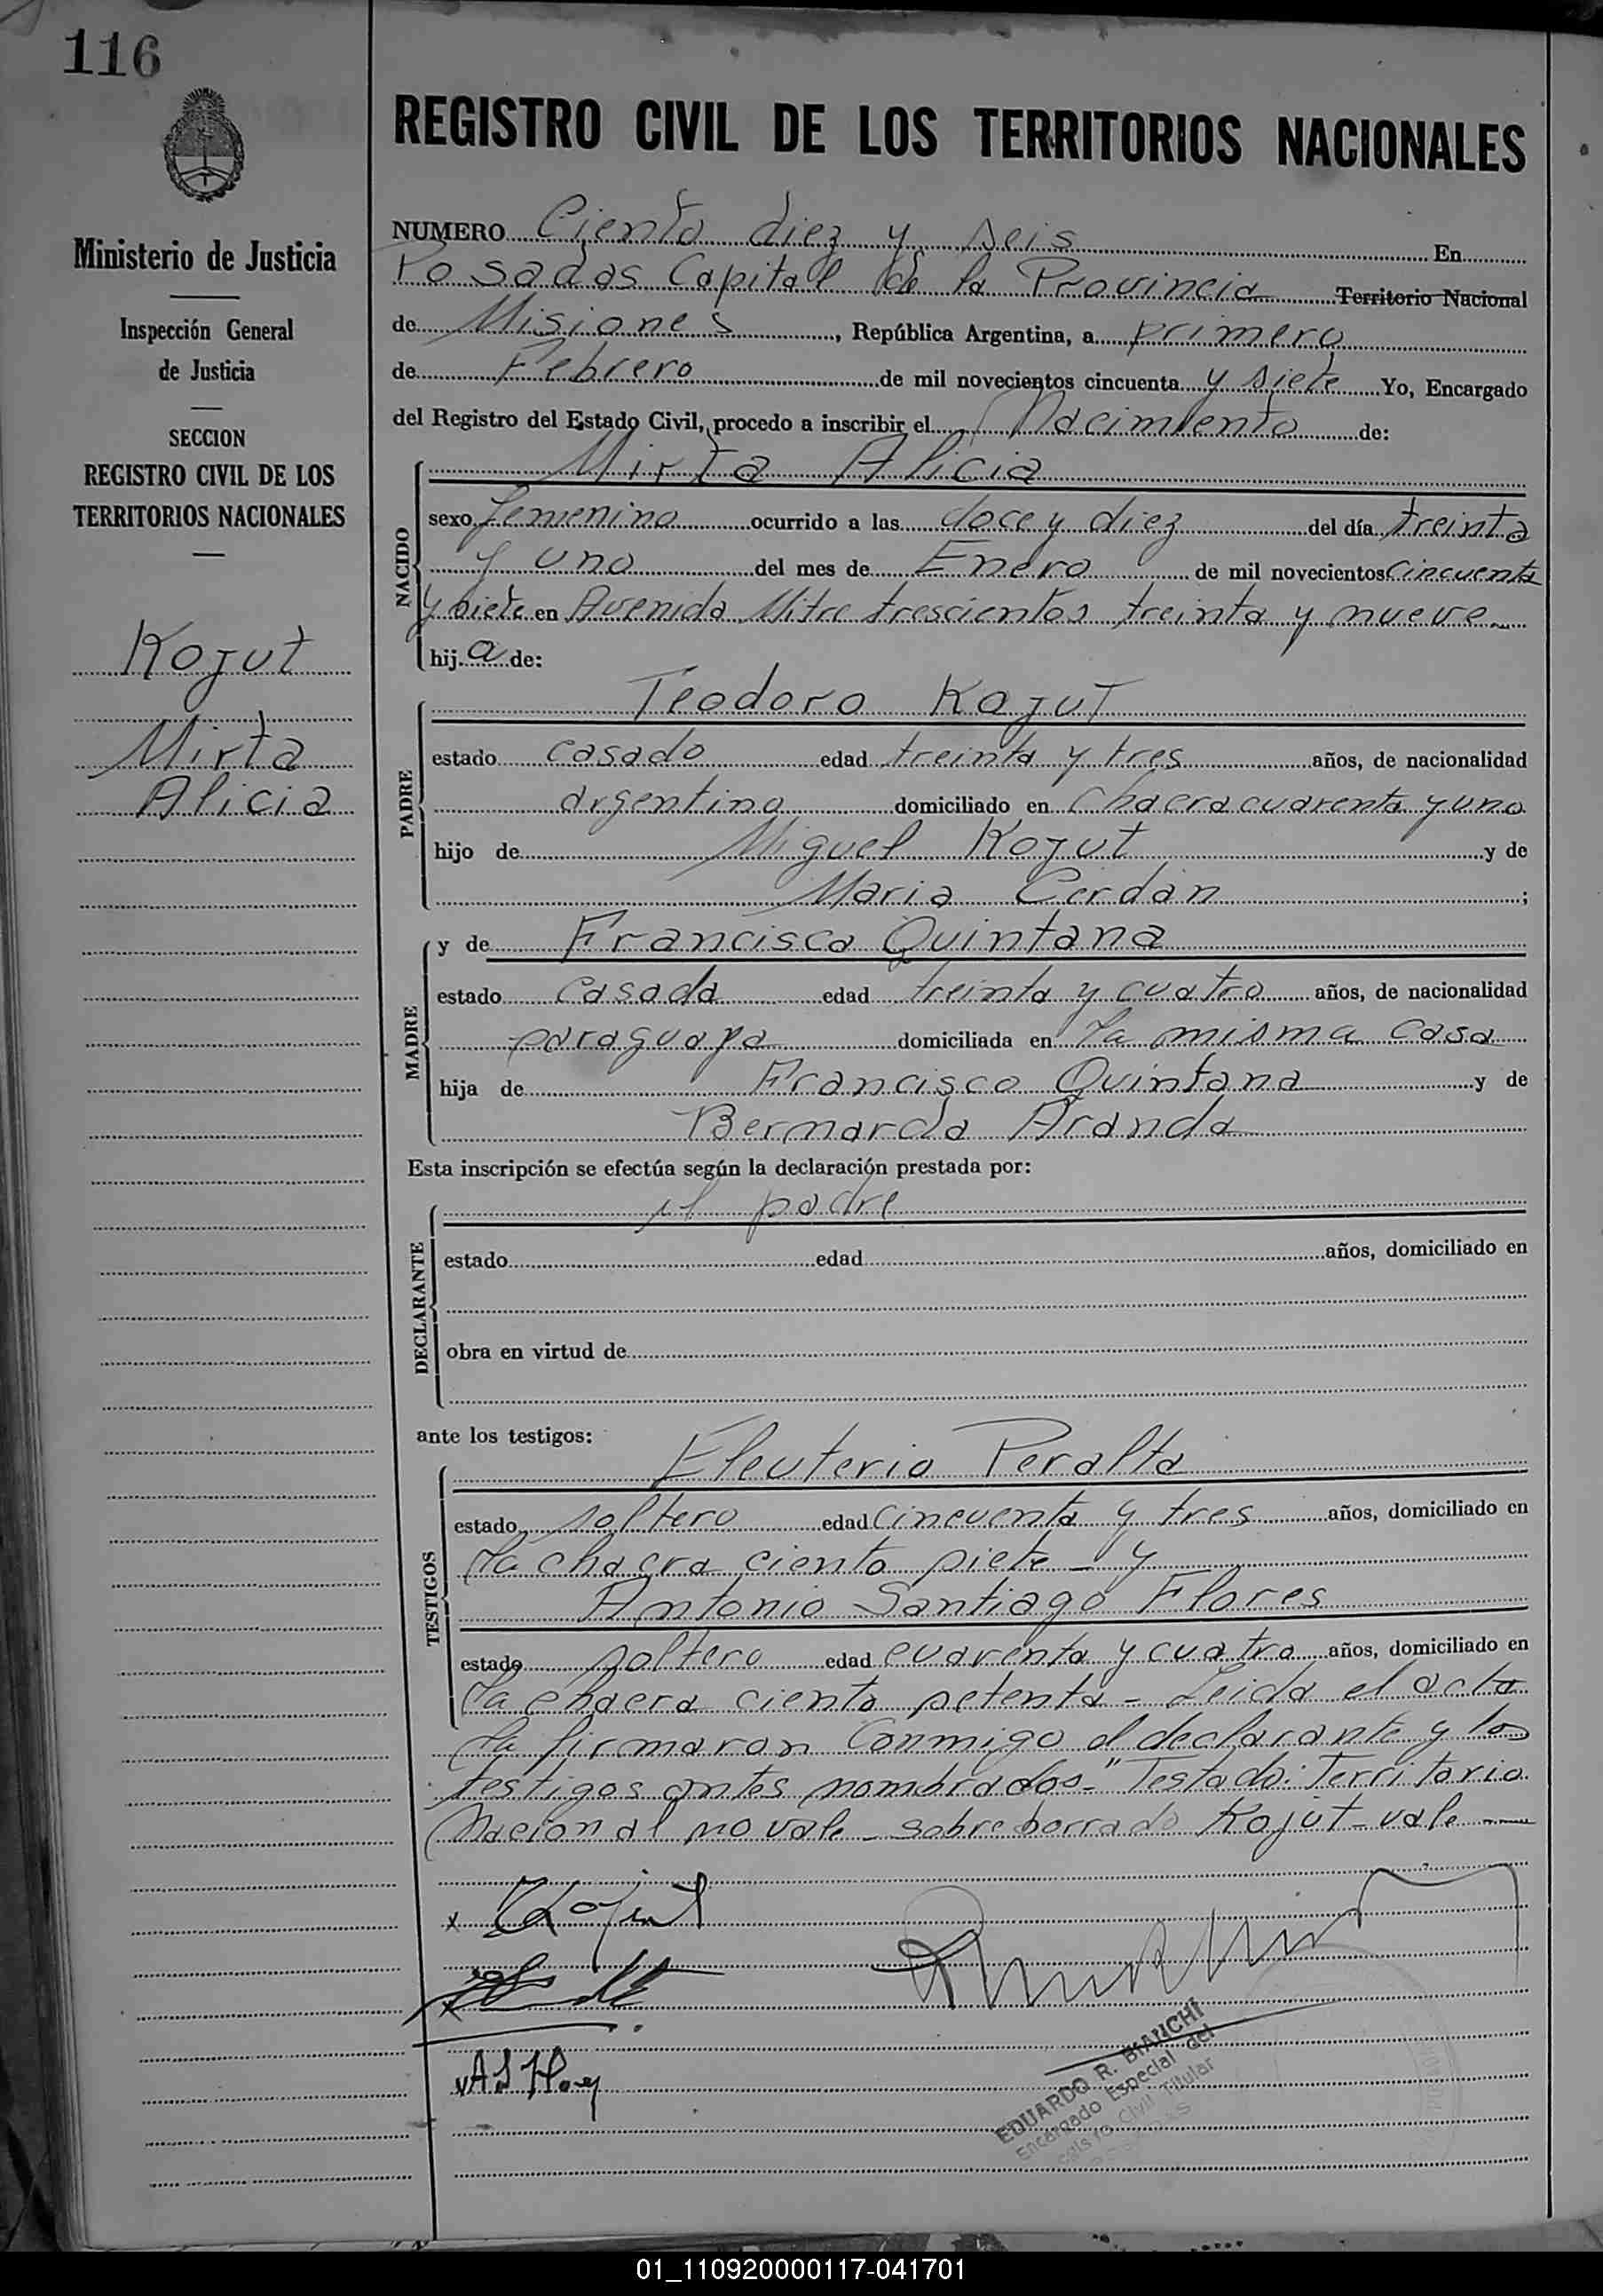 116
Ministerio de Justicia
Inspección General
de Justicia
SECCION
REGISTRO CIVIL DE LOS
TERRITORIOS NACIONALES
Kojut
Mirta
Alicia
REGISTRO CIVIL DE LOS TERRITORIOS NACIONALES
NUMERO Ciento diez y seis En
Posadas Capital de la Provincia Territorio Nacional
de Misiones, República Argentina, a primero
de Febrero de mil novecientos cincuenta y siete Yo, Encargado
del Registro del Estado Civil, procedo a inscribir el Nacimiento de:
Mirta Alicia
NACIDO
sexo femenino ocurrido a las doce y diez del día treinta
y uno del mes de Enero de mil novecientos cincuenta
y siete en Avenida Mitre trescientos treinta y nueve
hija de:
Teodoro Kojut
PADRE
estado casado edad treinta y tres años, de nacionalidad
argentina domiciliado en Chacra cuarenta y uno
hijo de Miguel Kojut y de
Maria Cerdan;
MADRE
y de Francisca Quintana
estado casada edad treinta y cuatro años, de nacionalidad
paraguaya domiciliada en la misma casa
hija de Francisco Quintana y de
Bernarda Aranda
Esta inscripción se efectúa según la declaración prestada por:
el padre
DECLARANTE
estado edad años, domiciliado en
obra en virtud de
ante los testigos:
Eleuterio Peralta
TESTIGOS
estado soltero edad cincuenta y tres años, domiciliado en
la chacra ciento siete - y
Antonio Santiago Flores
estado soltero edad cuarenta y cuatro años, domiciliado en
la chacra ciento setenta - Leida el acta
la firmaron conmigo el declarante y los
testigos antes nombrados-" Testado: Territorio
Nacional no vale - sobre borrado Kojut - vale
x Kojut
EDUARDO R. BIANCHI
Encargado Especial del
Civil Titular
01_110920000117-041701